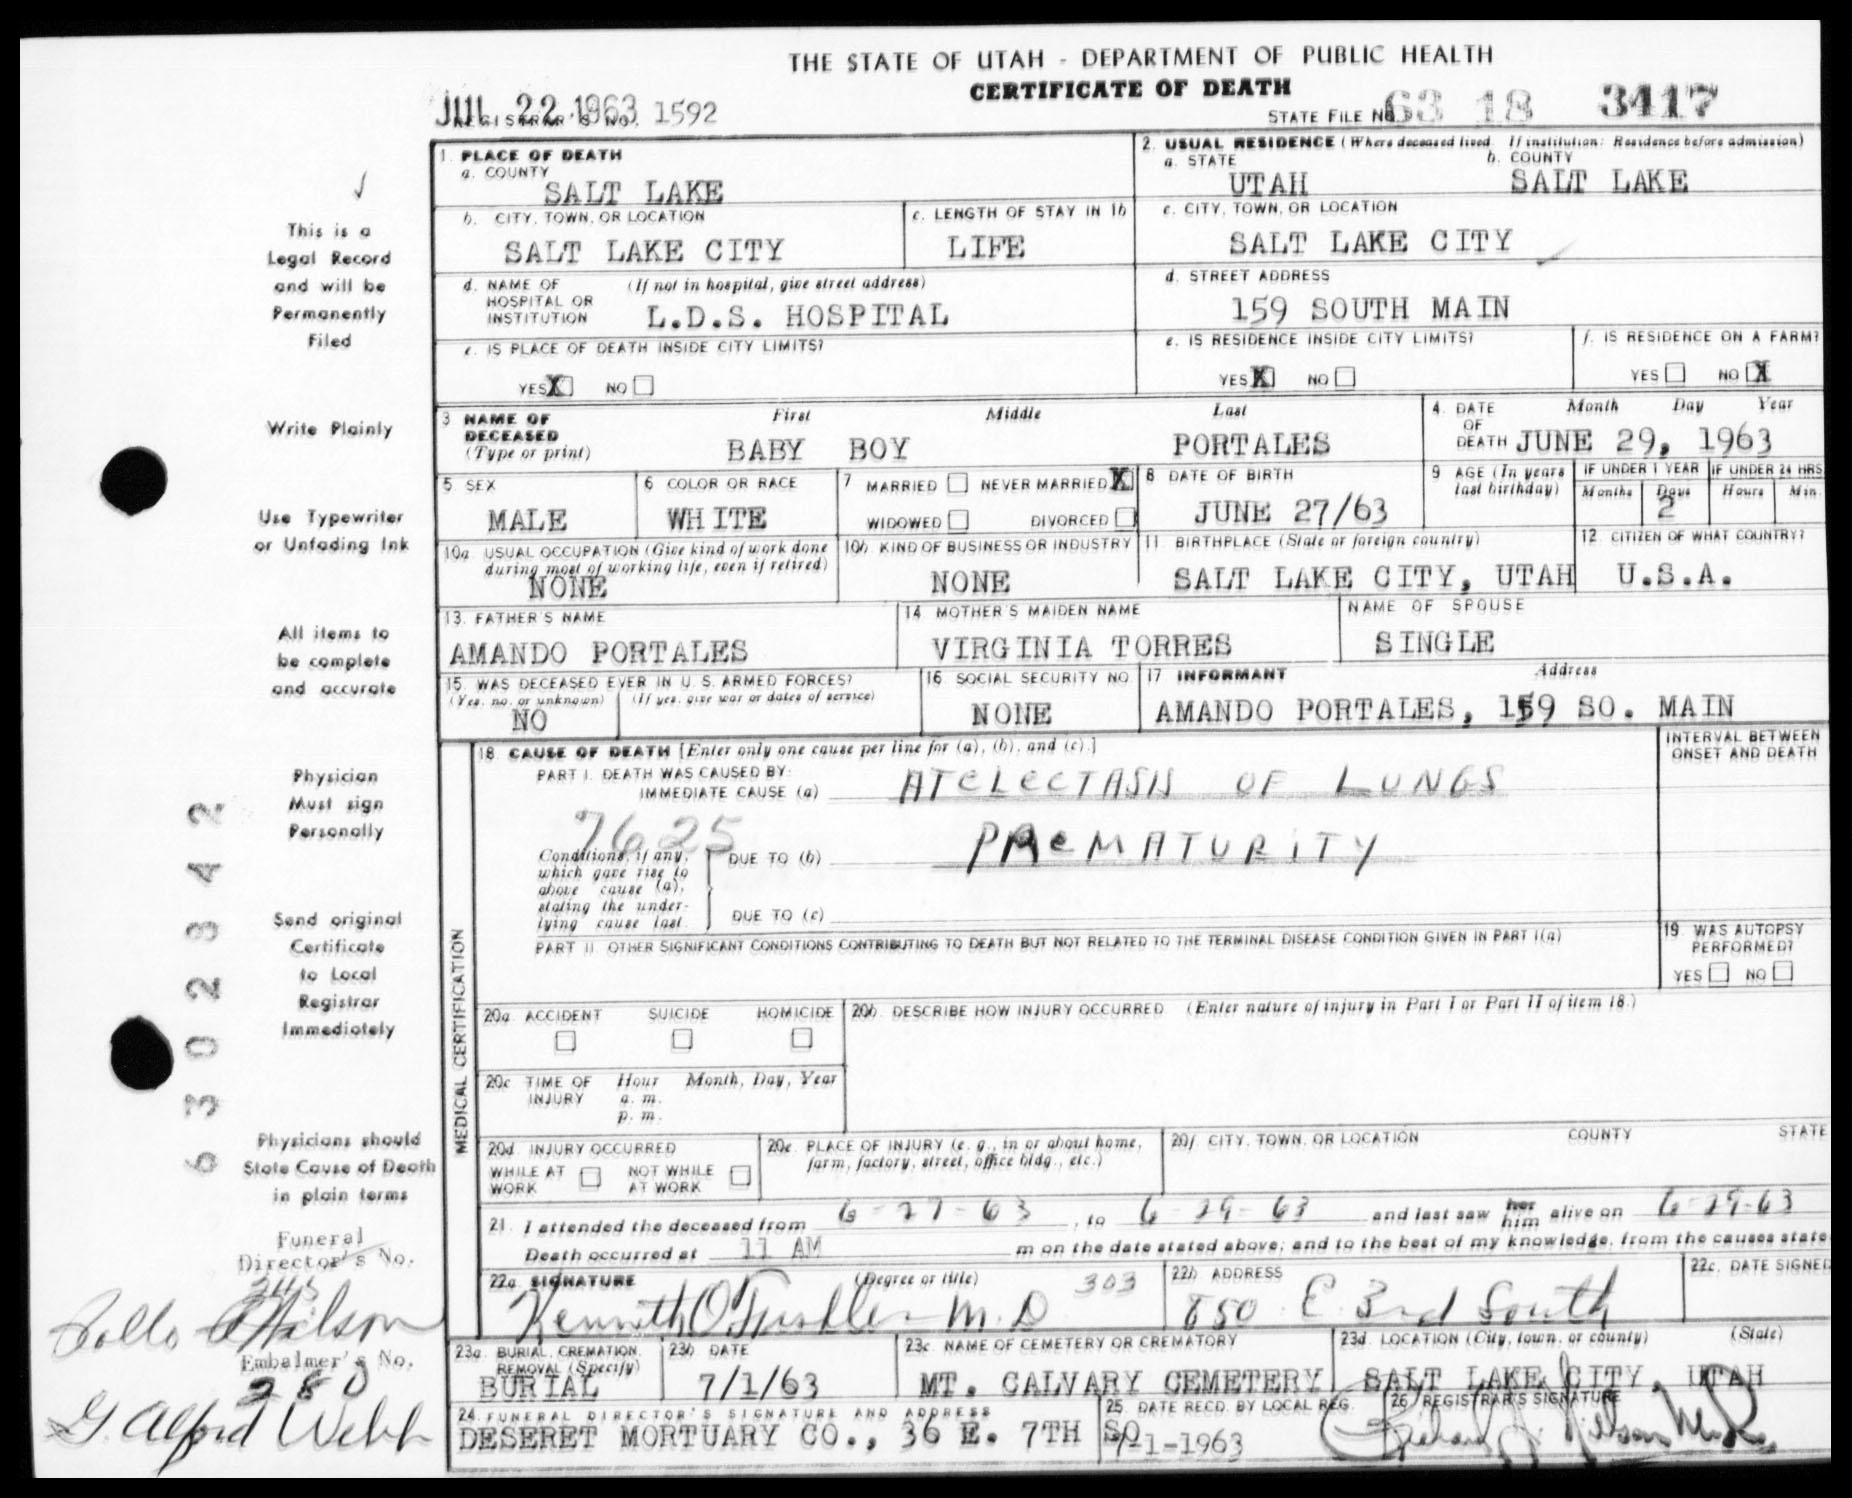 THE STATE OF UTAH - DEPARTMENT OF PUBLIC HEALTH
CERTIFICATE OF DEATH
JUL 22 1963
REGISTRAR'S NO. 1592
STATE FILE NO. 63 18 3417
1. PLACE OF DEATH
a. COUNTY
SALT LAKE
2. USUAL RESIDENCE (Where deceased lived. If institution: Residence before admission)
a. STATE b. COUNTY
UTAH SALT LAKE
b. CITY, TOWN, OR LOCATION
SALT LAKE CITY
c. LENGTH OF STAY IN 1b
LIFE
c. CITY, TOWN, OR LOCATION
SALT LAKE CITY
d. NAME OF HOSPITAL OR INSTITUTION (If not in hospital, give street address)
L.D.S. HOSPITAL
d. STREET ADDRESS
159 SOUTH MAIN
e. IS PLACE OF DEATH INSIDE CITY LIMITS?
YES X NO
e. IS RESIDENCE INSIDE CITY LIMITS?
YES X NO
f. IS RESIDENCE ON A FARM?
YES NO X
3 NAME OF DECEASED (Type or print)
First Middle Last
BABY BOY PORTALES
4. DATE OF DEATH Month Day Year
JUNE 29, 1963
5 SEX
MALE
6 COLOR OR RACE
WHITE
7 MARRIED NEVER MARRIED X
WIDOWED DIVORCED
8 DATE OF BIRTH
JUNE 27/63
9 AGE (In years last birthday)
IF UNDER 1 YEAR IF UNDER 24 HRS
Months Days Hours Min.
2
10a. USUAL OCCUPATION (Give kind of work done during most of working life, even if retired)
NONE
10b. KIND OF BUSINESS OR INDUSTRY
NONE
11. BIRTHPLACE (State or foreign country)
SALT LAKE CITY, UTAH
12. CITIZEN OF WHAT COUNTRY?
U.S.A.
13. FATHER'S NAME
AMANDO PORTALES
14 MOTHER'S MAIDEN NAME
VIRGINIA TORRES
NAME OF SPOUSE
SINGLE
15. WAS DECEASED EVER IN U. S. ARMED FORCES?
(Yes, no, or unknown) (If yes, give war or dates of service)
NO
16 SOCIAL SECURITY NO.
NONE
17 INFORMANT Address
AMANDO PORTALES, 159 SO. MAIN
MEDICAL CERTIFICATION
18 CAUSE OF DEATH [Enter only one cause per line for (a), (b), and (c).]
INTERVAL BETWEEN ONSET AND DEATH
PART I. DEATH WAS CAUSED BY:
IMMEDIATE CAUSE (a) ATELECTASIS OF LUNGS
7625
Conditions, if any, which gave rise to above cause (a), stating the underlying cause last.
DUE TO (b) PREMATURITY
DUE TO (c)
PART II. OTHER SIGNIFICANT CONDITIONS CONTRIBUTING TO DEATH BUT NOT RELATED TO THE TERMINAL DISEASE CONDITION GIVEN IN PART I(a)
19. WAS AUTOPSY PERFORMED?
YES NO
20a. ACCIDENT SUICIDE HOMICIDE
20b. DESCRIBE HOW INJURY OCCURRED (Enter nature of injury in Part I or Part II of item 18.)
20c TIME OF INJURY Hour Month, Day, Year
a. m.
p. m.
20d INJURY OCCURRED
WHILE AT WORK NOT WHILE AT WORK
20e. PLACE OF INJURY (e. g., in or about home, farm, factory, street, office bldg., etc.)
20f CITY, TOWN, OR LOCATION COUNTY STATE
21. I attended the deceased from 6-27-63, to 6-29-63 and last saw her him alive on 6-29-63
Death occurred at 11 AM m on the date stated above; and to the best of my knowledge, from the causes state
22a SIGNATURE (Degree or title) 303
Kenneth O M.D
22b ADDRESS
850 E 3rd South
22c. DATE SIGNED
23a. BURIAL, CREMATION, REMOVAL (Specify)
BURIAL
23b DATE
7/1/63
23c. NAME OF CEMETERY OR CREMATORY
MT. CALVARY CEMETERY
23d. LOCATION (City, town, or county) (State)
SALT LAKE CITY UTAH
24. FUNERAL DIRECTOR'S SIGNATURE AND ADDRESS
DESERET MORTUARY CO., 36 E. 7TH SO
25. DATE RECD. BY LOCAL REG.
7-1-1963
26 REGISTRAR'S SIGNATURE
This is a
Legal Record
and will be
Permanently
Filed
Write Plainly
Use Typewriter
or Unfading Ink
All items to
be complete
and accurate
Physician
Must sign
Personally
Send original
Certificate
to Local
Registrar
Immediately
Physicians should
State Cause of Death
in plain terms
Funeral
Director's No.
Wilson
Embalmer's No.
280
G. Alford Webb
6302342